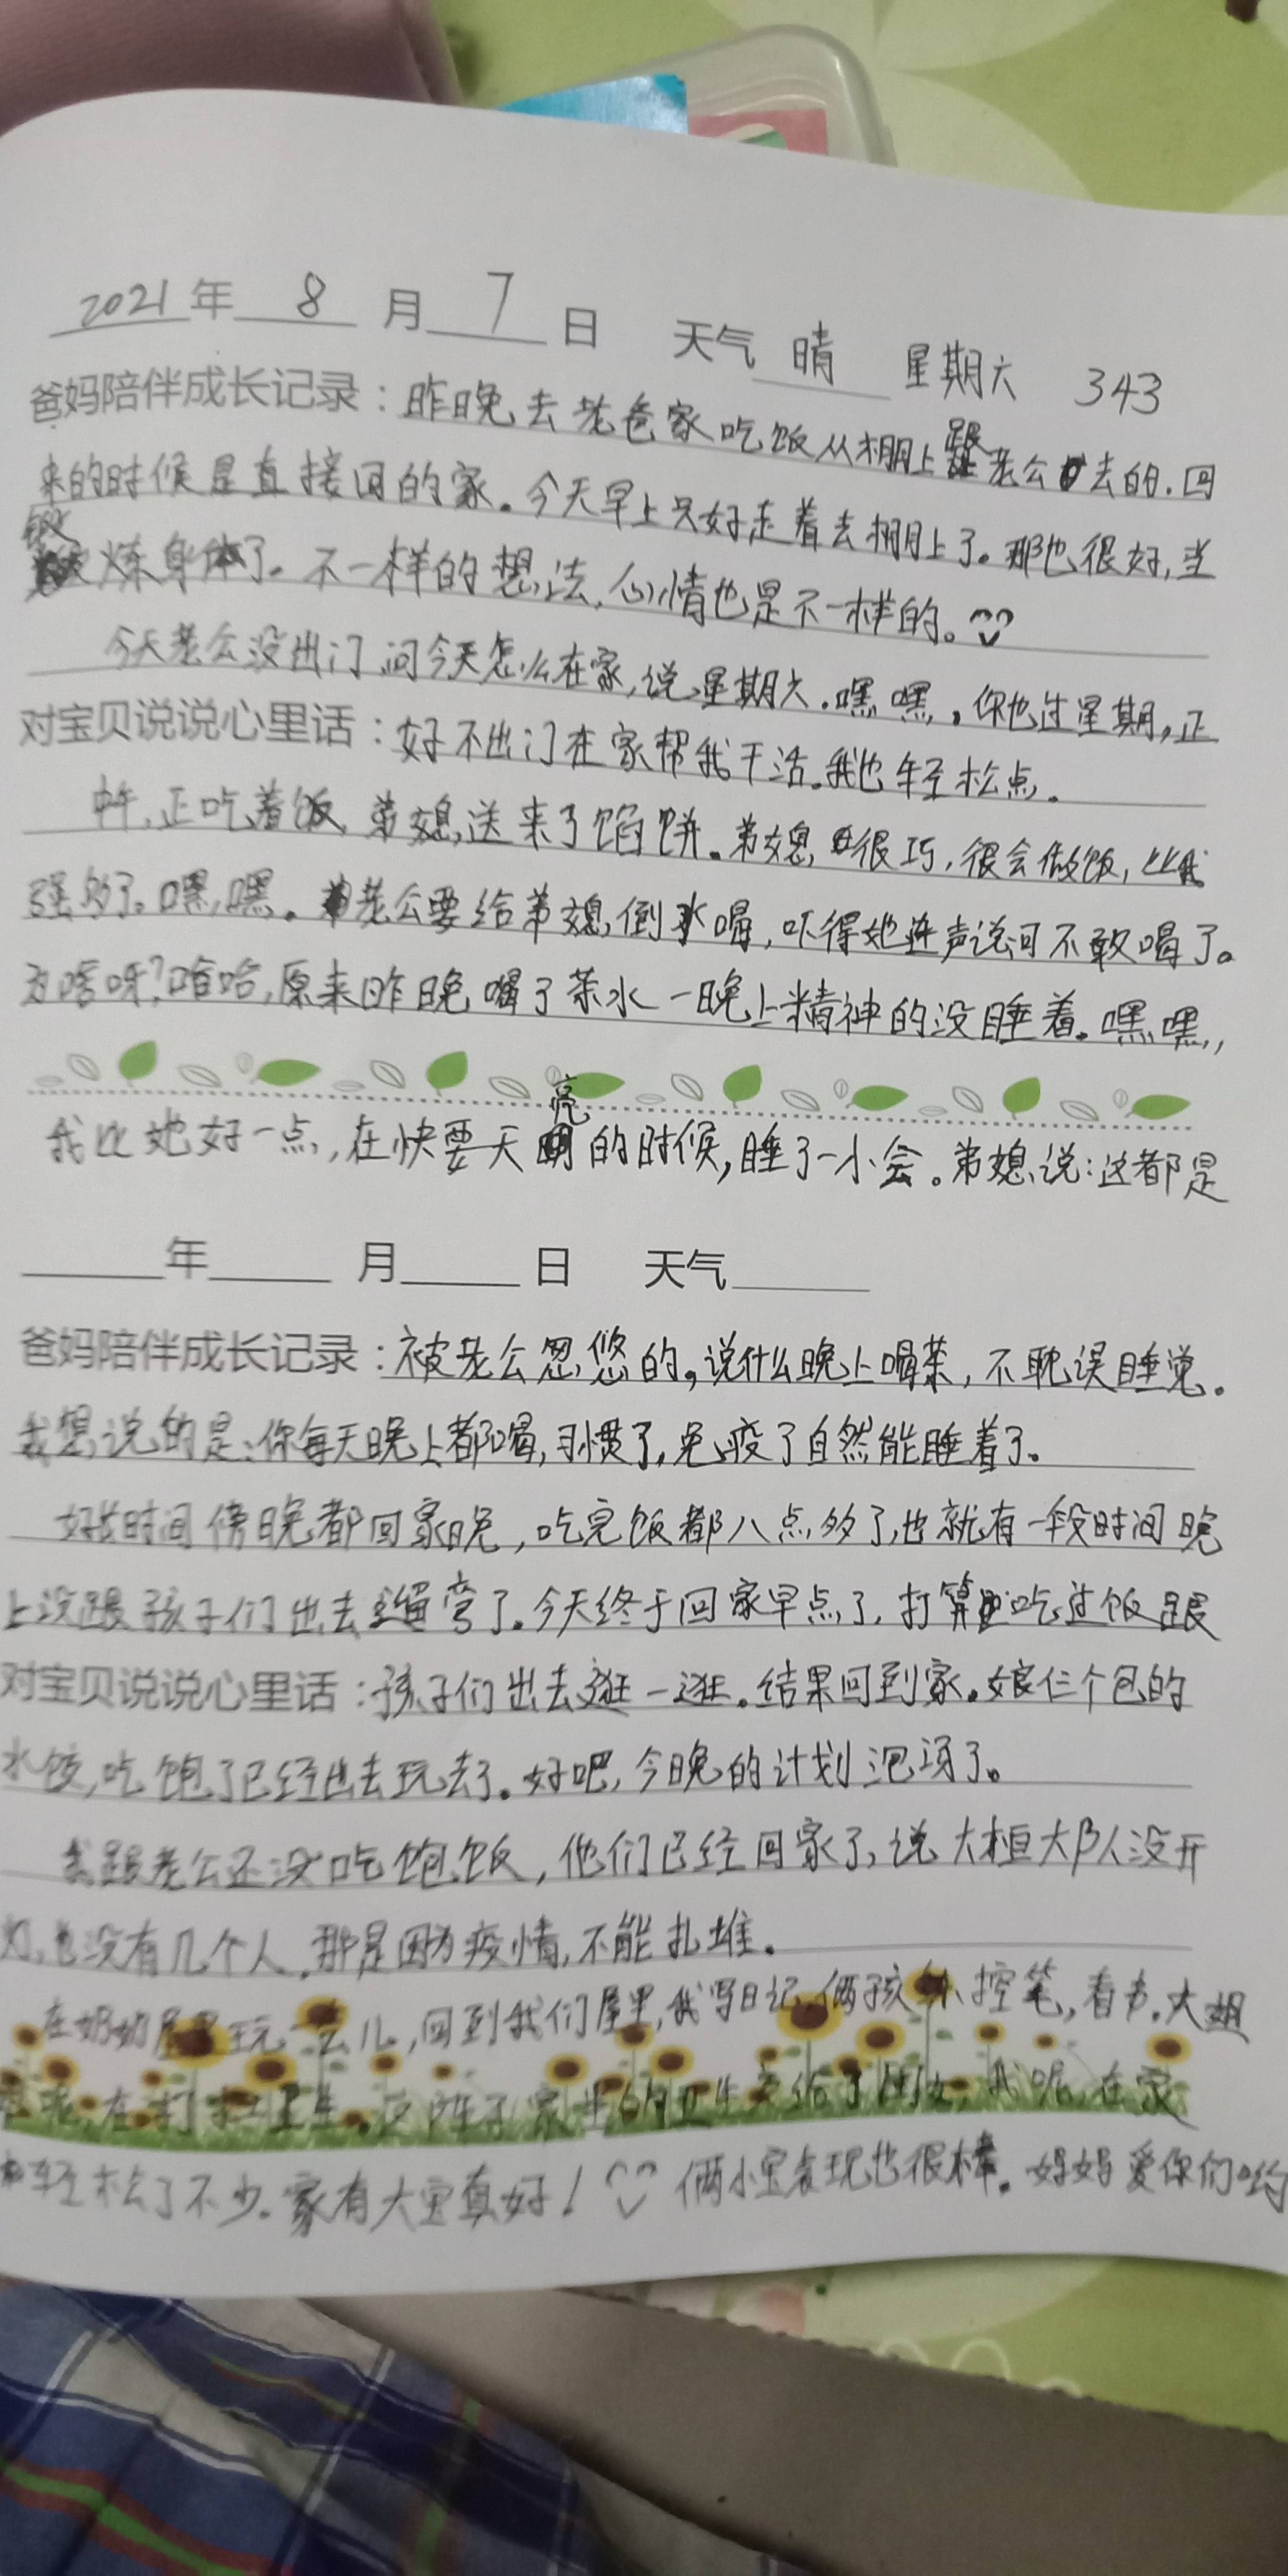 2021年 8 月 7 日 天气 晴 星期六 343
爸妈陪伴成长记录：昨晚去老爸家吃饭从棚上跟老公去的.回
来的时候是直接回的家。今天早上只好走着去棚上了。那也很好,当
锻炼身体了。不一样的想法,心情也是不一样的。
今天老公没出门,问今天怎么在家,说星期六.嘿嘿,你也过星期,正
对宝贝说说心里话：好不出门在家帮我干活.我也轻松点.
中午,正吃着饭,弟媳送来了馅饼.弟媳很巧,很会做饭,比我
强多了.嘿嘿.老公要给弟媳倒水喝,吓得她连声说可不敢喝了。
为啥呀?哈哈,原来昨晚喝了茶水一晚上精神的没睡着.嘿嘿,
我比她好一点,在快要天亮的时候,睡了一小会.弟媳说:这都是
年 月 日 天气
爸妈陪伴成长记录：被老公忽悠的。说什么晚上喝茶,不耽误睡觉.
我想说的是:你每天晚上都喝,习惯了,免疫了自然能睡着了.
好长时间傍晚都回家晚,吃完饭都八点多了,也就有一段时间晚
上没跟孩子们出去遛弯了.今天终于回家早点了,打算吃过饭跟
对宝贝说说心里话：孩子们出去逛一逛.结果回到家.娘仨个包的
水饺,吃饱了已经出去玩去了.好吧,今晚的计划泡汤了。
我跟老公还没吃饱饭,他们已经回家了,说大桓大队没开
灯,也没有几个人.那是因为疫情,不能扎堆.
在奶奶屋里玩一会儿,回到我们屋里,我写日记,俩孩 控笔,看书.大姐
在打扫卫生. 家里的卫生交给了 我呢,在家
轻松了不少.家有大宝真好! 俩小宝表现也很棒.妈妈爱你们哟